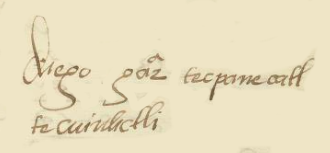 diego garᵃ tecpanecatl
tecuiuhtli